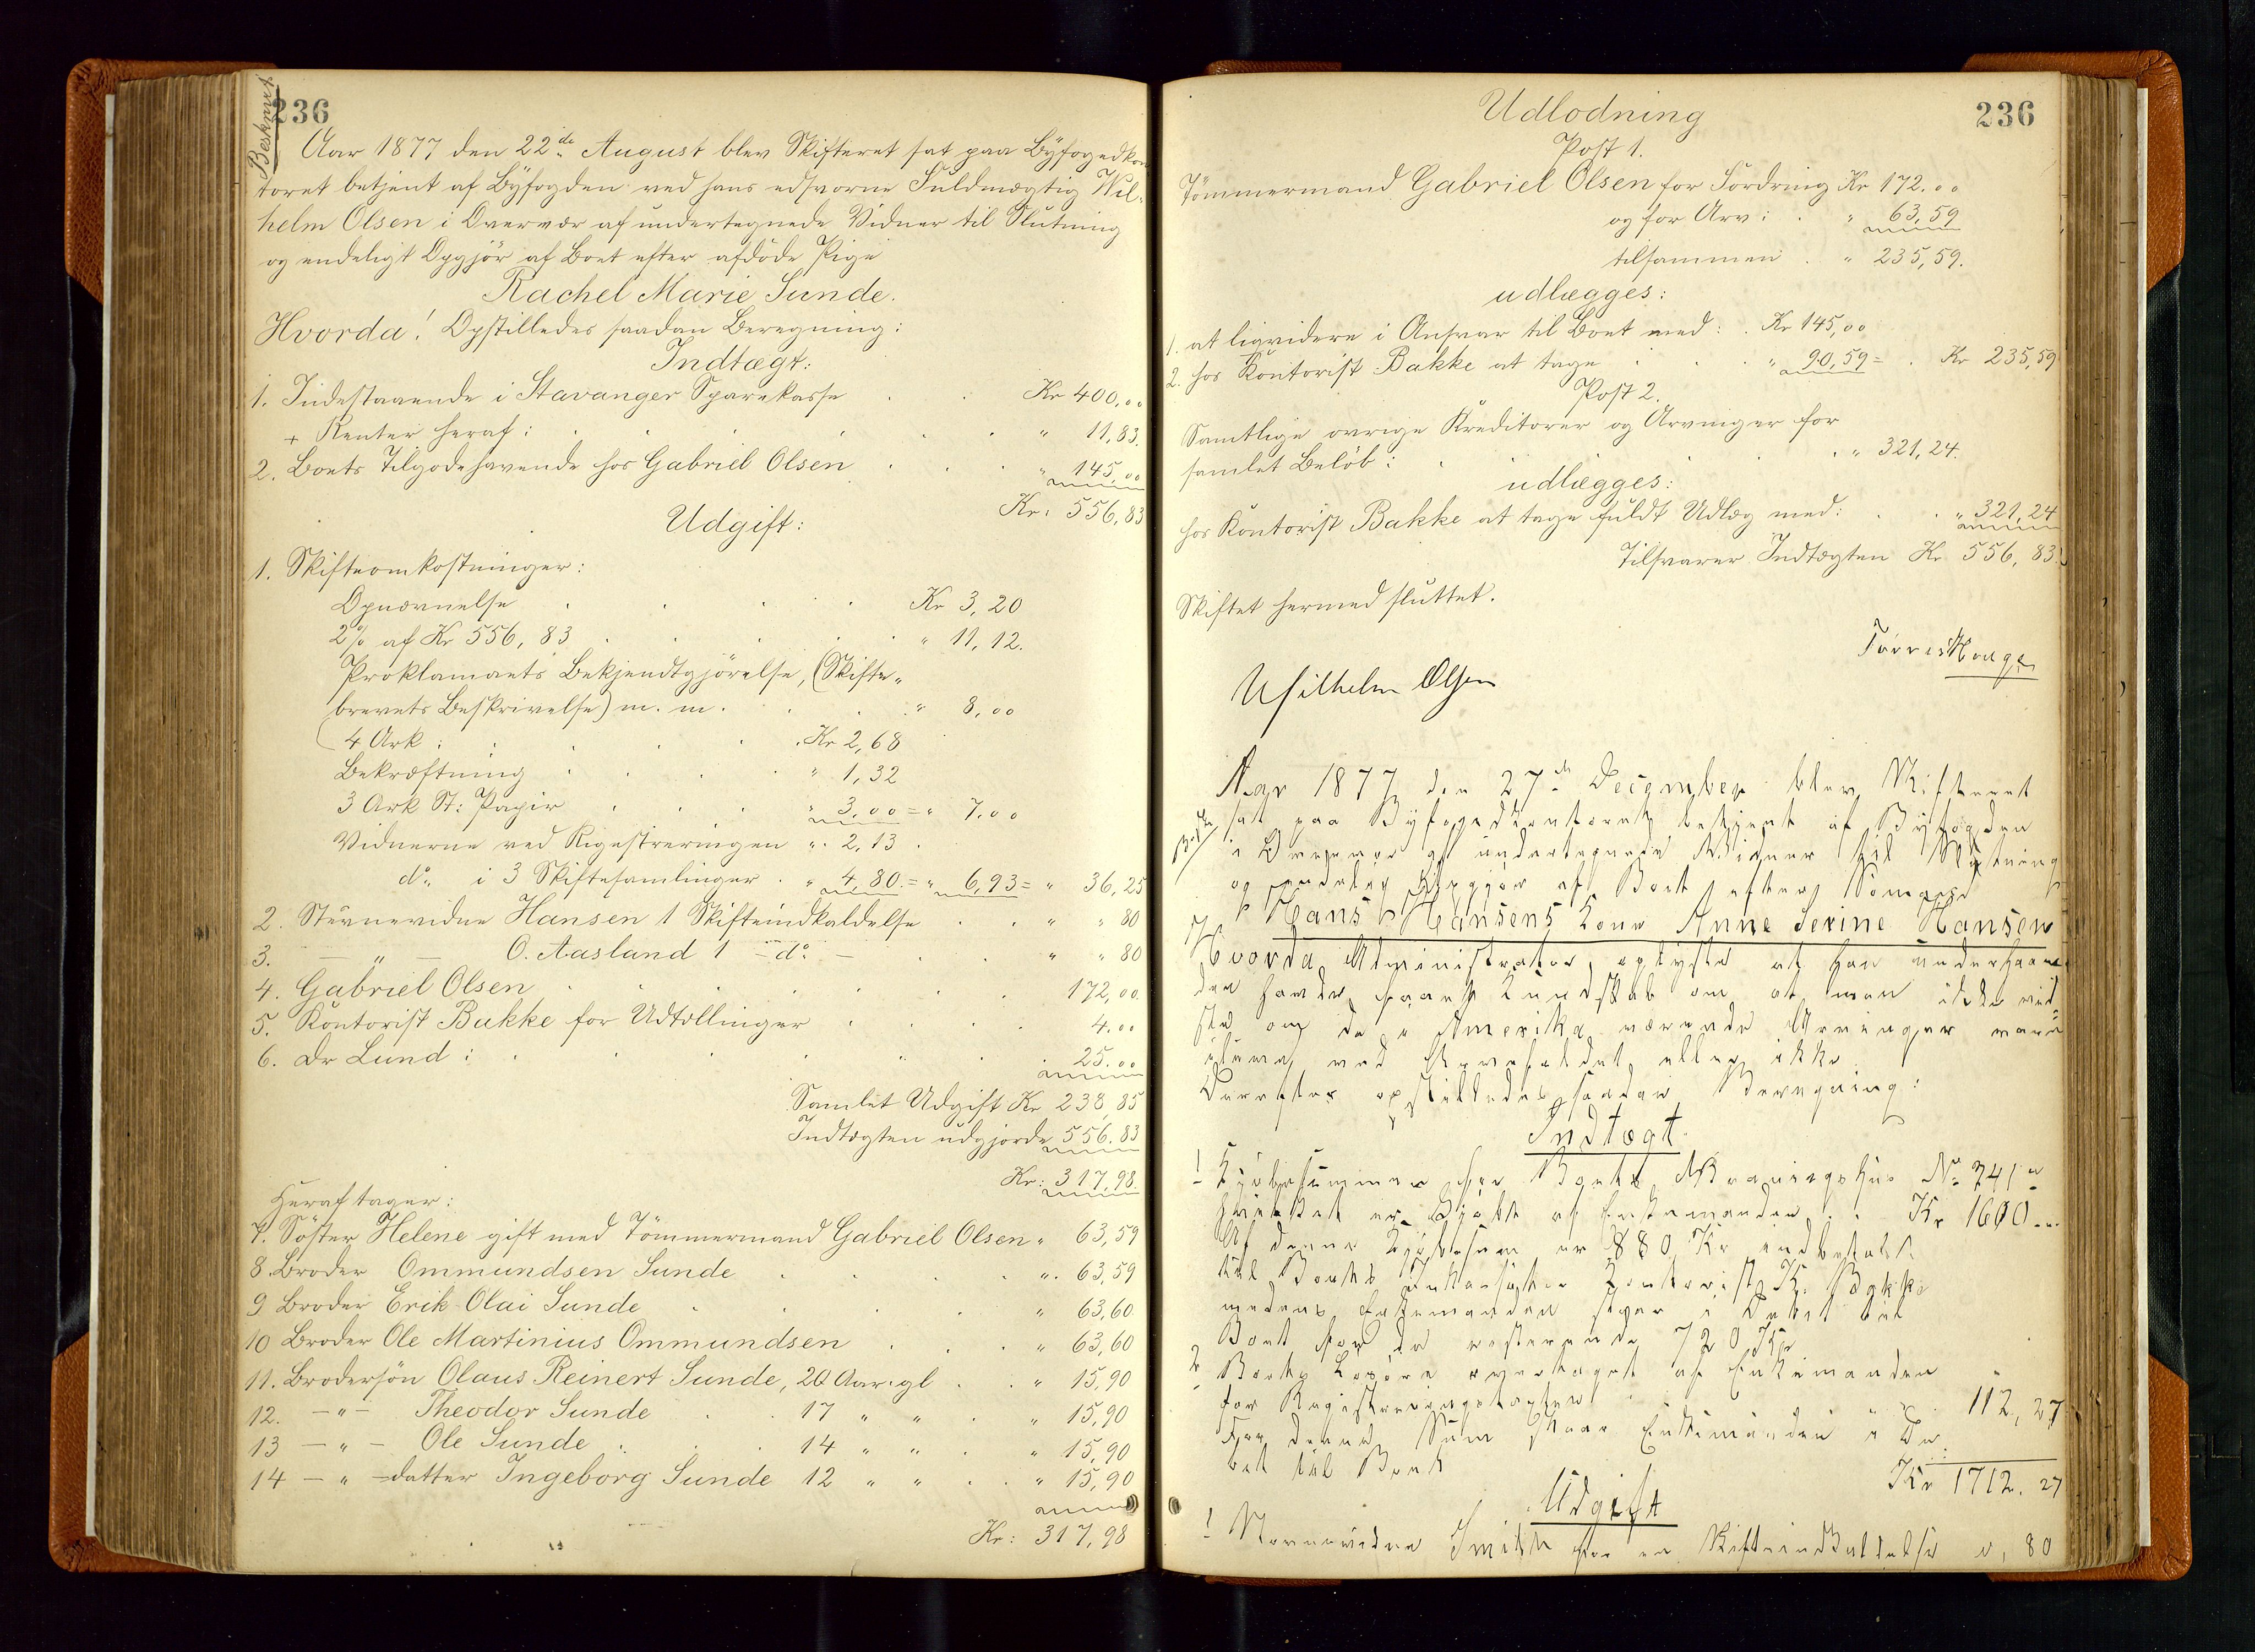 Beskrevet
236
Aar 1877 den 22de August blev Skifteret sat paa Byfogedkon
toret betjent af Byfogden ved hans edsvorne Fuldmægtig Wil-
helm Olsen i Overvær af undertegnede Vidner til Slutning
og endeligt Opgjör af Boet efter afdöde Pige
Rachel Marie Sunde.
Hvorda! Opstilledes saadan Beregning:
Indtægt:
1. Indestaaende i Stavanger Sparekasse . . Kr 400,00
+ Renter heraf: . . . . . . " 11,83.
2. Boets Tilgodehavende hos Gabriel Olsen . . . " 145,00
Kr: 556,83
Udgift:
1. Skifteomkostninger:
Opnævnelse . . . . Kr 3,20
2% af Kr 556,83 . . . . . " 11,12.
Proklamaets Bekjendtgjörelse, (Skifte-
brevets Beskrivelse) m. m. . . . " 8,00
4 Ark: . . . . . Kr 2,68
Bekræftning . . . . " 1,32
3 Ark St: Papir . . . " 3,00 = " 7,00
Vidnerne ved Registreringen " 2,13 .
do. i 3 Skiftesamlinger . " 4,80 = " 6,93 = " 36,25
2. Stævnevidne Hansen 1 Skifteindkaldelse . . " " 80
3. — " — O. Aasland 1 – do. – . . " " 80
4. Gabriel Olsen . . . . . . 172,00.
5. Kontorist Bakke for Udtællinger . . . . 4.00
6. Dr Lund: . . . . . . . 25.00
Samlet Udgift Kr 238,85
Indtægten udgjorde 556.83
Kr: 317,98.
Heraf tager:
7. Söster Helene gift med Tömmermand Gabriel Olsen " 63,59
8. Broder Ommundsen Sunde . . . . ". 63,59
9 Broder Erik Olai Sunde . . . . " 63,60
10 Broder Ole Martinius Ommundsen . . . " 63,60
11. Brodersön Olaus Reinert Sunde, 20 Aar gl . . " 15,90
12. — " — Theodor Sunde . . 17 " " . " 15,90
13 — " — Ole Sunde . . . 14 " " . " 15,90
14 — " — datter Ingeborg Sunde 12 " " . . " 15,90
Kr: 317,98
Udlodning
236
Post 1.
Tömmermand Gabriel Olsen for Fordring Kr 172.00
og for Arv: . . " 63,59
tilsammen . " 235,59.
udlægges:
1. at liqvidere i Ansvar til Boet med: . Kr 145,00
2. hos Kontorist Bakke at tage . . . " 90,59 = . Kr 235,59
Post 2.
Samtlige övrige Kreditorer og Arvinger for
samlet Belöb: . . . . . " 321,24.
udlægges:
hos Kontorist Bakke at tage fuldt Udlæg med: . . " 321,24
Tilsvarer Indtægten Kr 556,83.
Skiftet hermed sluttet.
Torres Hauge
Wilhelm Olsen
Aar 1877 den 27de December blev Skifteret
sat paa Byfogedkontoret betjent af Byfogden
i Overvær af undertegnede Vidner til Slutning
og endelig Opgjör af Boet efter Sömand
Hans Hansens Kone Anne Serine Hansen
Hvorda Administrator oplyste at han underhaan-
den havde faaet Kundskab om at man ikke vid-
ste om de i Amerika værende Arvinger vare
ilive ved Arvefaldet eller ikke
Derefter opstilledes saadan Beregning:
Indtægt
1 Kjöbesummen for Boets Vaaningshus No 741a
hvilket er kjöbt af Enkemanden . . Kr 1600 ...
Af denne Kjöbesum er 880 Kr indbetalt
til Boets Inkassator Kontorist K. Bakke
medens Enkemanden staar i Debet til
Boet for de resterende 720 Kr
2 Boets Lösöre overtaget af Enkemanden
for Registreringstaxten . . . . 112,27
For denne Sum staar Enkemanden i De-
bet til Boet
Kr 1712.27
Udgift
1 Stevnevidne Smith for en Skifteindkaldelse 0,80